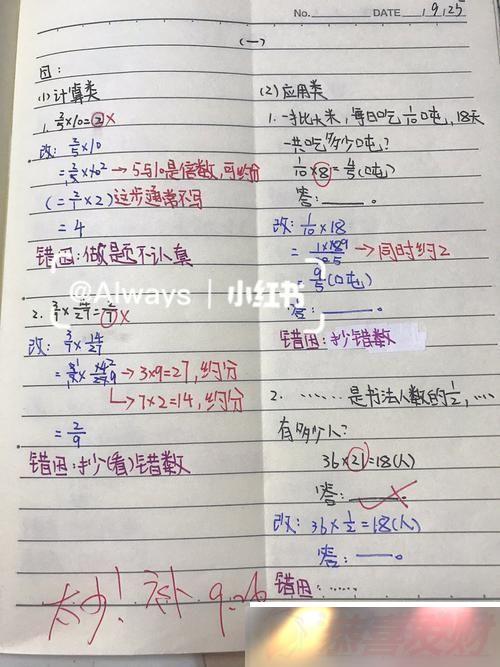 No. DATE 9.25
(一)
(1)计算类
1. 2/5×10=2×
改: 2/5×10
=2/5×10² → 5与10是倍数,可约分
(=2/1×2)这步通常不写
=4
错因:做题不认真
2. 3/7×14/27=7×
改: 3/7×14/27
→ 3×9=27,约分
→ 7×2=14,约分
=2/9
错因:抄(看)错数
(2)应用类
1. 一大米,每日吃1/10吨,18天
一共吃多少吨?
1/10×8=4/5(吨)
答:____。
改:1/10×18
→ 同时约2
=9/5(吨)
答:____。
错因:抄错数
2. ……是书法人数的1/2,…
有多少人?
36×21=18(人)
答:____
改:36×1/2=18(人)
答:____。
错因:……
太少!补 9.26
@Always | 小红书
恭喜发财